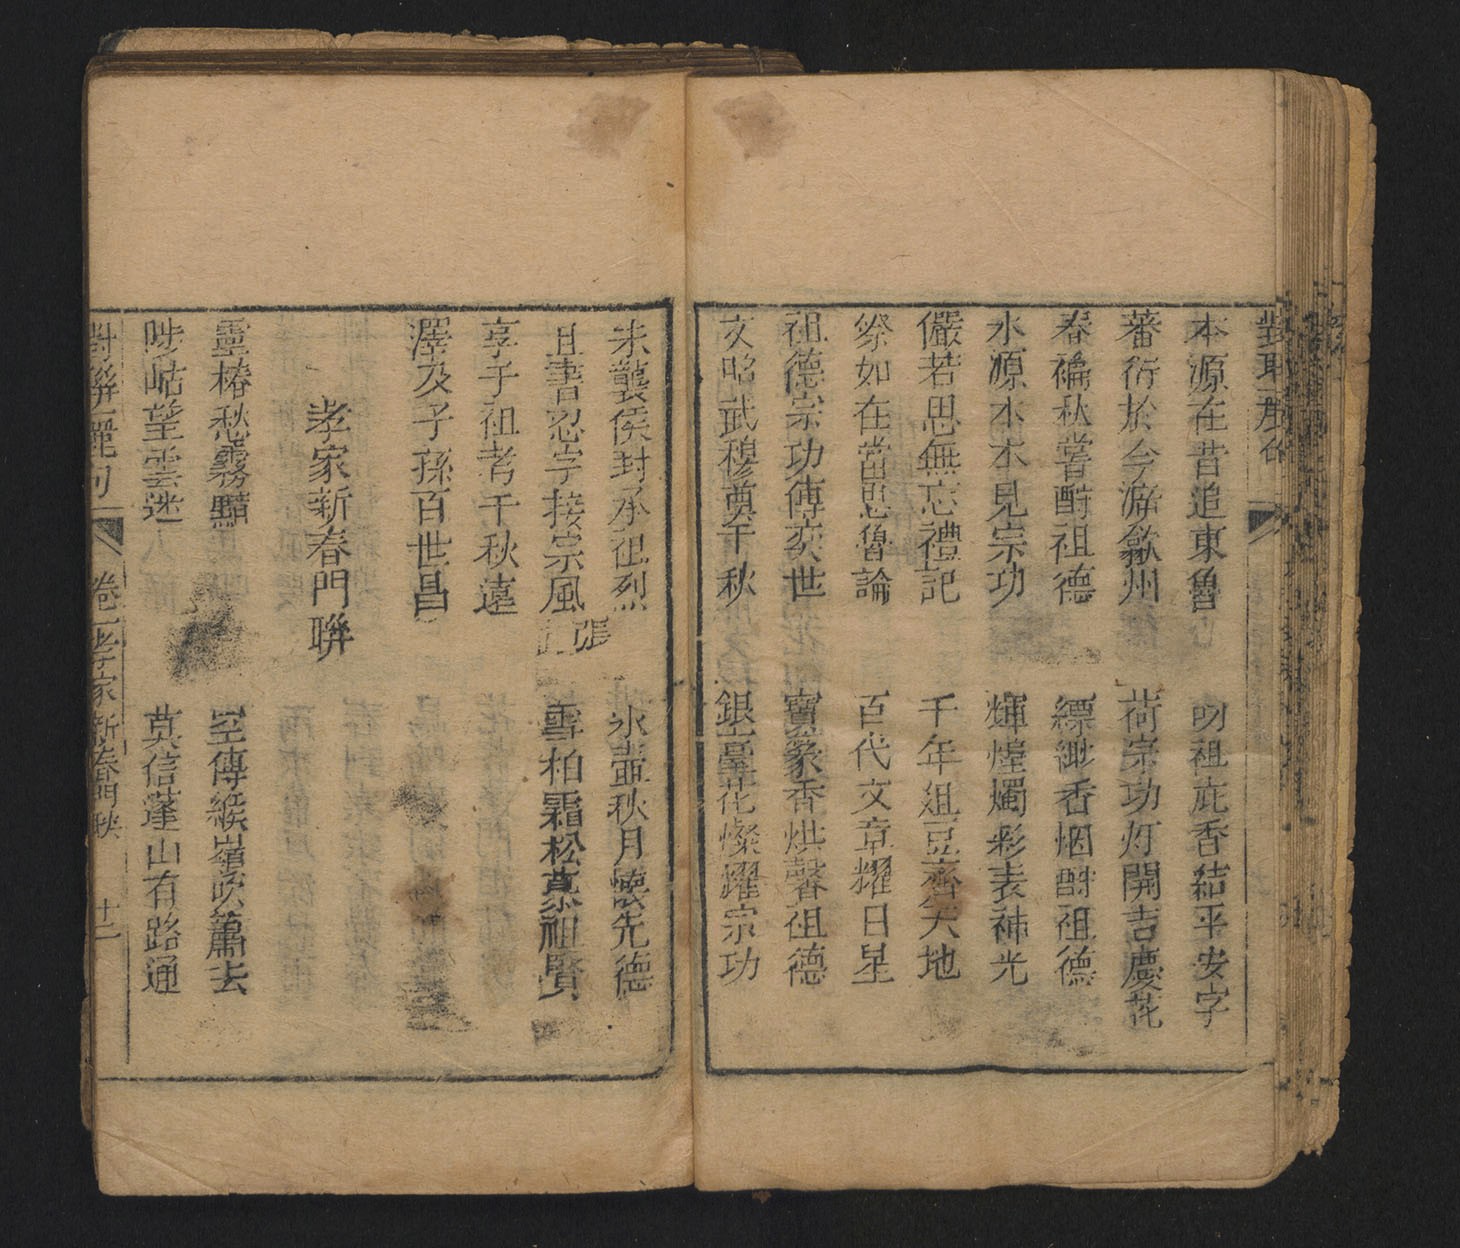 本源在昔追東魯
祖庇香結平安字
蕃衍於今溯歙州
荷宗功灯開吉慶花
春禴秋嘗酧祖德
縹緲香烟酧祖德
水源木本見宗功
輝煌燭彩表神光
儼若思無忘禮記
千年俎豆齊天地
祭如在當思魯論
百代文章耀日星
祖德宗功傳奕世
寶篆香烘馨祖德
文昭武穆奠千秋
銀臺花燦耀宗功
未襲侯封承祖烈
氷壺秋月懷先德
且書忍字接宗風
張
雪柏霜松慕祖賢
享于祖考千秋遠
澤及子孫百世昌
孝家新春門聨
靈椿秋愁霧黯
空傳緱嶺吹簫去
陟岵望雲迷
莫信蓬山有路通
對聨麗句
卷一孝家新春門聨
十二